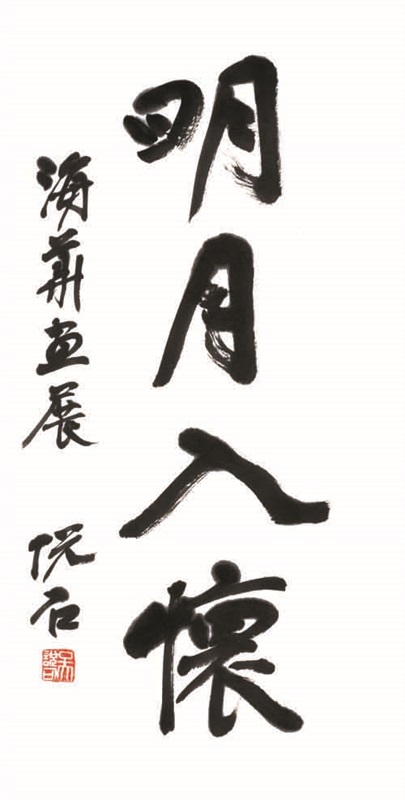 明月入懷
海華画展
悦石